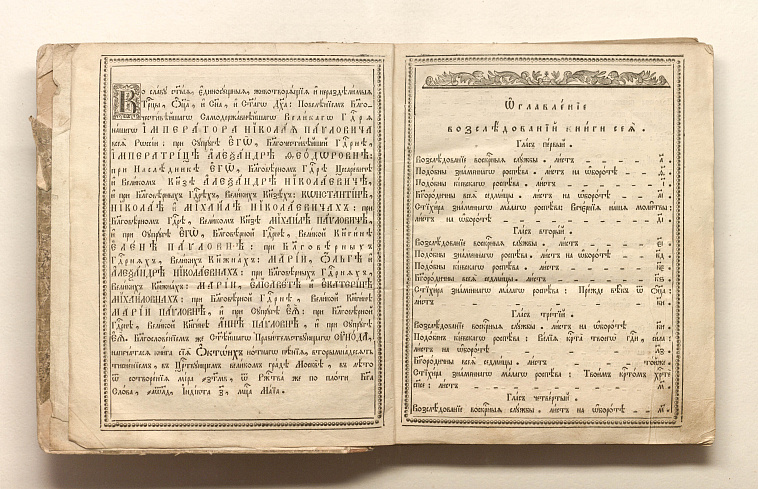 Во славу ст҃ыѧ, єдиносꙋ́щныѧ, животворѧ́щїѧ и҆ нераздѣ́лимыѧ
Трⷪ҇цы, Ѻ҆ц҃а̀, и҆ Сн҃а, и҆ Ст҃а́гѡ Дх҃а: Повелѣ́нїемъ Благо-
честивѣ́йшагѡ Самодержа́внѣйшагѡ Вели́кагѡ Гдⷭ҇рѧ
на́шегѡ І҆МПЕРА́ТОРА НІКОЛА́Ѧ ПА́ѴЛОВИЧА
всеѧ̀ Рѡссі́и: при Сꙋпрꙋ́гѣ Є҆ГѠ̀, Благочести́вѣйшей Гдⷭ҇рнѣ,
І҆МПЕРАТРІ́ЦѢ А҆ЛЕѮА́НДРѢ ѲЕО́ДѠРОВНѢ:
при Наслѣ́дникѣ Є҆ГѠ̀, Благовѣ́рномъ Гдⷭ҇рѣ Цесаре́вичѣ
и҆ Вели́комъ Кнѧ́зѣ А҆ЛЕѮА́НДРѢ НІКОЛА́ЕВИЧѢ,
и҆ при Благовѣ́рныхъ Гдⷭ҇рѣхъ, Вели́кихъ Кнѧ́зехъ: КѠНСТАНТІ́НѢ,
НІКОЛА́Ѣ и҆ МІХАИ́ЛѢ НІКОЛА́ЕВИЧАХЪ: при
Благовѣ́рномъ Гдⷭ҇рѣ, Вели́комъ Кнѧ́зѣ МІХАИ́ЛѢ ПА́ѴЛОВИЧѢ,
и҆ при Сꙋпрꙋ́гѣ Є҆ГѠ̀, Благовѣ́рной Гдⷭ҇рнѣ, Вели́кой Кнѧги́нѣ
Є҆ЛЕ́НѢ ПА́ѴЛОВНѢ: при Благовѣ́рныхъ
Гдⷭ҇рнѧхъ, Вели́кихъ Кнѧжна́хъ: МАРІ́И, Ѻ҆́ЛЬГѢ и҆
А҆ЛЕѮА́НДРѢ НІКОЛА́ЕВНАХЪ: при Благовѣ́рныхъ Гдⷭ҇рнѧхъ,
Вели́кихъ Кнѧжна́хъ: МАРІ́И, Є҆ЛІСАВЕ́ТѢ и҆ Є҆КАТЕРІ́НѢ
МІХА́ЙЛОВНАХЪ: при Благовѣ́рной Гдⷭ҇рнѣ, Вели́кой Кнѧги́нѣ
МАРІ́И ПА́ѴЛОВНѢ, и҆ при Сꙋпрꙋ́гѣ Є҆Ѧ̀: при Благовѣ́рной
Гдⷭ҇рнѣ, Вели́кой Кнѧги́нѣ А҆́ННѢ ПА́ѴЛОВНѢ, и҆ при Сꙋпрꙋ́гѣ
Є҆Ѧ̀. Благослове́нїемъ же Ст҃ѣ́йшагѡ Прави́тельствꙋющагѡ СѴНО́ДА,
напеча́тасѧ кни́га сїѧ̀ О҆ктѡ́ихъ но́тнагѡ пѣ́нїѧ, вторымна́десѧть
тисне́нїемъ, въ Ца́рствꙋющемъ вели́комъ гра́дѣ Москвѣ̀, въ лѣ́то
ѿ сотворе́нїѧ мі́ра ѿ Ржⷭ҇тва̀ же по пло́ти Бг҃а
Сло́ва, І҆ндї́кта мцⷭ҇а Ма́їа.
Ѡ҆главле́нїе
возслѣ́дованїй кни́ги сеѧ̀.
Гла́съ пе́рвый.
Возслѣ́дованїе воскрⷭ҇ныѧ слꙋ́жбы. ли́стъ - - - - а҃.
Подо́бны зна́меннагѡ роспѣ́ва. ли́стъ на ѡ҆боро́тѣ - - и҃.
Подо́бны кі́евскагѡ роспѣ́ва. ли́стъ - - - - і҃.
Бг҃оро́дичны всеѧ̀ седми́цы. ли́стъ на ѡ҆боро́тѣ - - - а҃і.
Стїхи́ра зна́меннагѡ ма́лагѡ роспѣ́ва: Вече́рнїѧ на́шѧ моли́твы:
ли́стъ на ѡ҆боро́тѣ - - - -
Гла́съ вторы́й.
Возслѣ́дованїе воскрⷭ҇ныѧ слꙋ́жбы. ли́стъ - - - - є҃і.
Подо́бны зна́меннагѡ роспѣ́ва. ли́стъ на ѡ҆боро́тѣ - - к҃д.
Подо́бны кі́евскагѡ роспѣ́ва. ли́стъ - - - - к҃є.
Бг҃оро́дичны всеѧ̀ седми́цы. ли́стъ - - - - к҃ѕ.
Стїхи́ра зна́меннагѡ ма́лагѡ роспѣ́ва: Пре́жде вѣ̑къ ѿ Ѻ҆ц҃а̀:
ли́стъ - - - - к҃и.
Гла́съ тре́тїй.
Возслѣ́дованїе воскрⷭ҇ныѧ слꙋ́жбы. ли́стъ на ѡ҆боро́тѣ - к҃и.
Подо́бенъ кі́евскагѡ роспѣ́ва: Ве́лїѧ крⷭ҇та̀ твоегѡ̀ гдⷭ҇и си́ла:
ли́стъ на ѡ҆боро́тѣ - - - - л҃з.
Бг҃оро́дичны всеѧ̀ седми́цы. ли́стъ - - - - то́йже.
Стїхи́ра зна́меннагѡ ма́лагѡ роспѣ́ва: Твои́мъ крⷭ҇то́мъ хрⷭ҇тѐ
сп҃се: ли́стъ - - - -
Гла́съ четве́ртый.
Возслѣ́дованїе воскрⷭ҇ныѧ слꙋ́жбы. ли́стъ на ѡ҆боро́тѣ - -